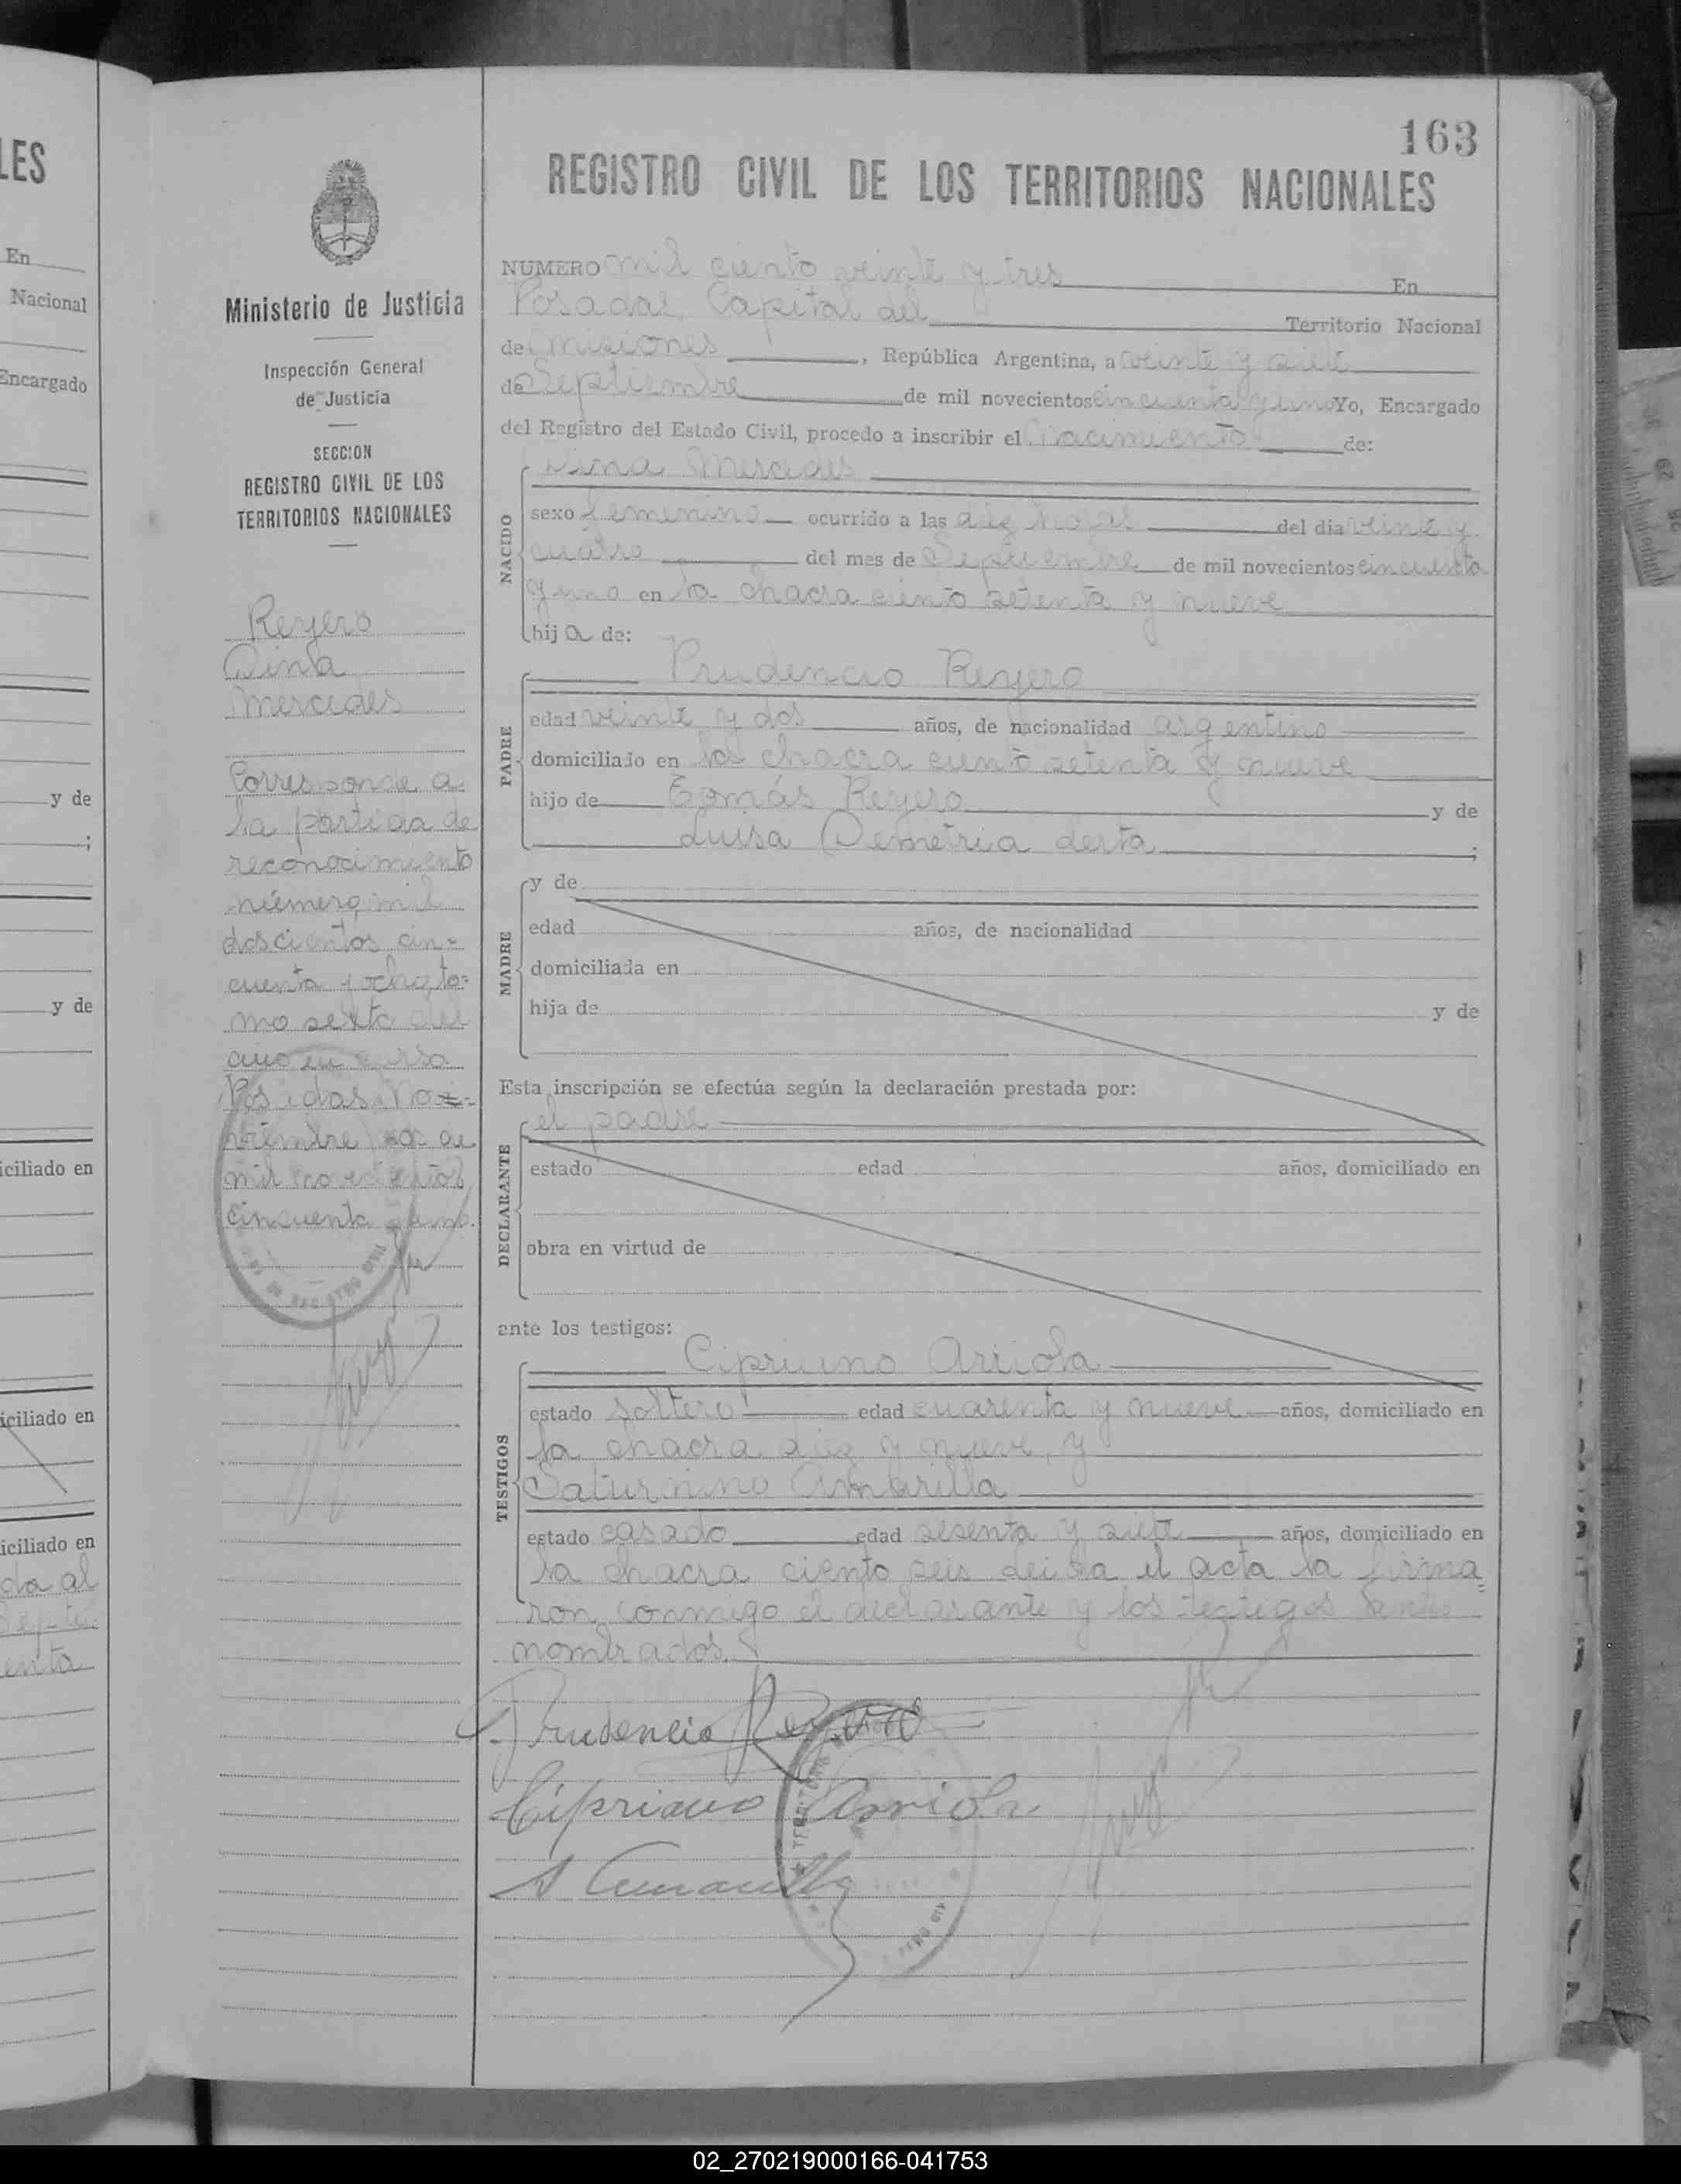 163
REGISTRO CIVIL DE LOS TERRITORIOS NACIONALES
NUMERO mil ciento veinte y tres En
Posadas Capital del Territorio Nacional
de Misiones, República Argentina, a veinte y siete
de Septiembre de mil novecientos cincuenta y uno Yo, Encargado
del Registro del Estado Civil, procedo a inscribir el Nacimiento de:
NACIDO
Dina Mercedes
sexo femenino ocurrido a las diez horas del día veinte y
cuatro del mes de Septiembre de mil novecientos cincuenta
y uno en la chacra ciento setenta y nueve
hija de:
PADRE
Prudencio Reyero
edad veinte y dos años, de nacionalidad argentino
domiciliado en la chacra ciento setenta y nueve
hijo de Tomás Reyero y de
Luisa Demetria
MADRE
y de
edad años, de nacionalidad
domiciliada en
hija de y de
Esta inscripción se efectúa según la declaración prestada por:
DECLARANTE
el padre
estado edad años, domiciliado en
obra en virtud de
ante los testigos:
TESTIGOS
Cipriano Arriola
estado soltero edad cuarenta y nueve años, domiciliado en
la chacra diez y nueve, y
Saturnino Amarilla
estado casado edad sesenta y siete años, domiciliado en
la chacra ciento seis leida el acta la firma=
ron conmigo el declarante y los testigos antes
nombrados.
Prudencio Reyero
Cipriano Arriola
S Amarilla
Ministerio de Justicia
Inspección General
de Justicia
SECCION
REGISTRO CIVIL DE LOS
TERRITORIOS NACIONALES
Reyero
Dina
Mercedes
Corresponde a
la partida de
reconocimiento
número mil
doscientos cin=
cuenta y ocho, to=
mo sexto del
año en curso
Posadas Nov=
iembre de
mil novecientos
cincuenta y uno.
LES
En
Nacional
Encargado
y de
;
y de
iciliado en
iciliado en
iciliado en
da al
Septi
enta
02_270219000166-041753